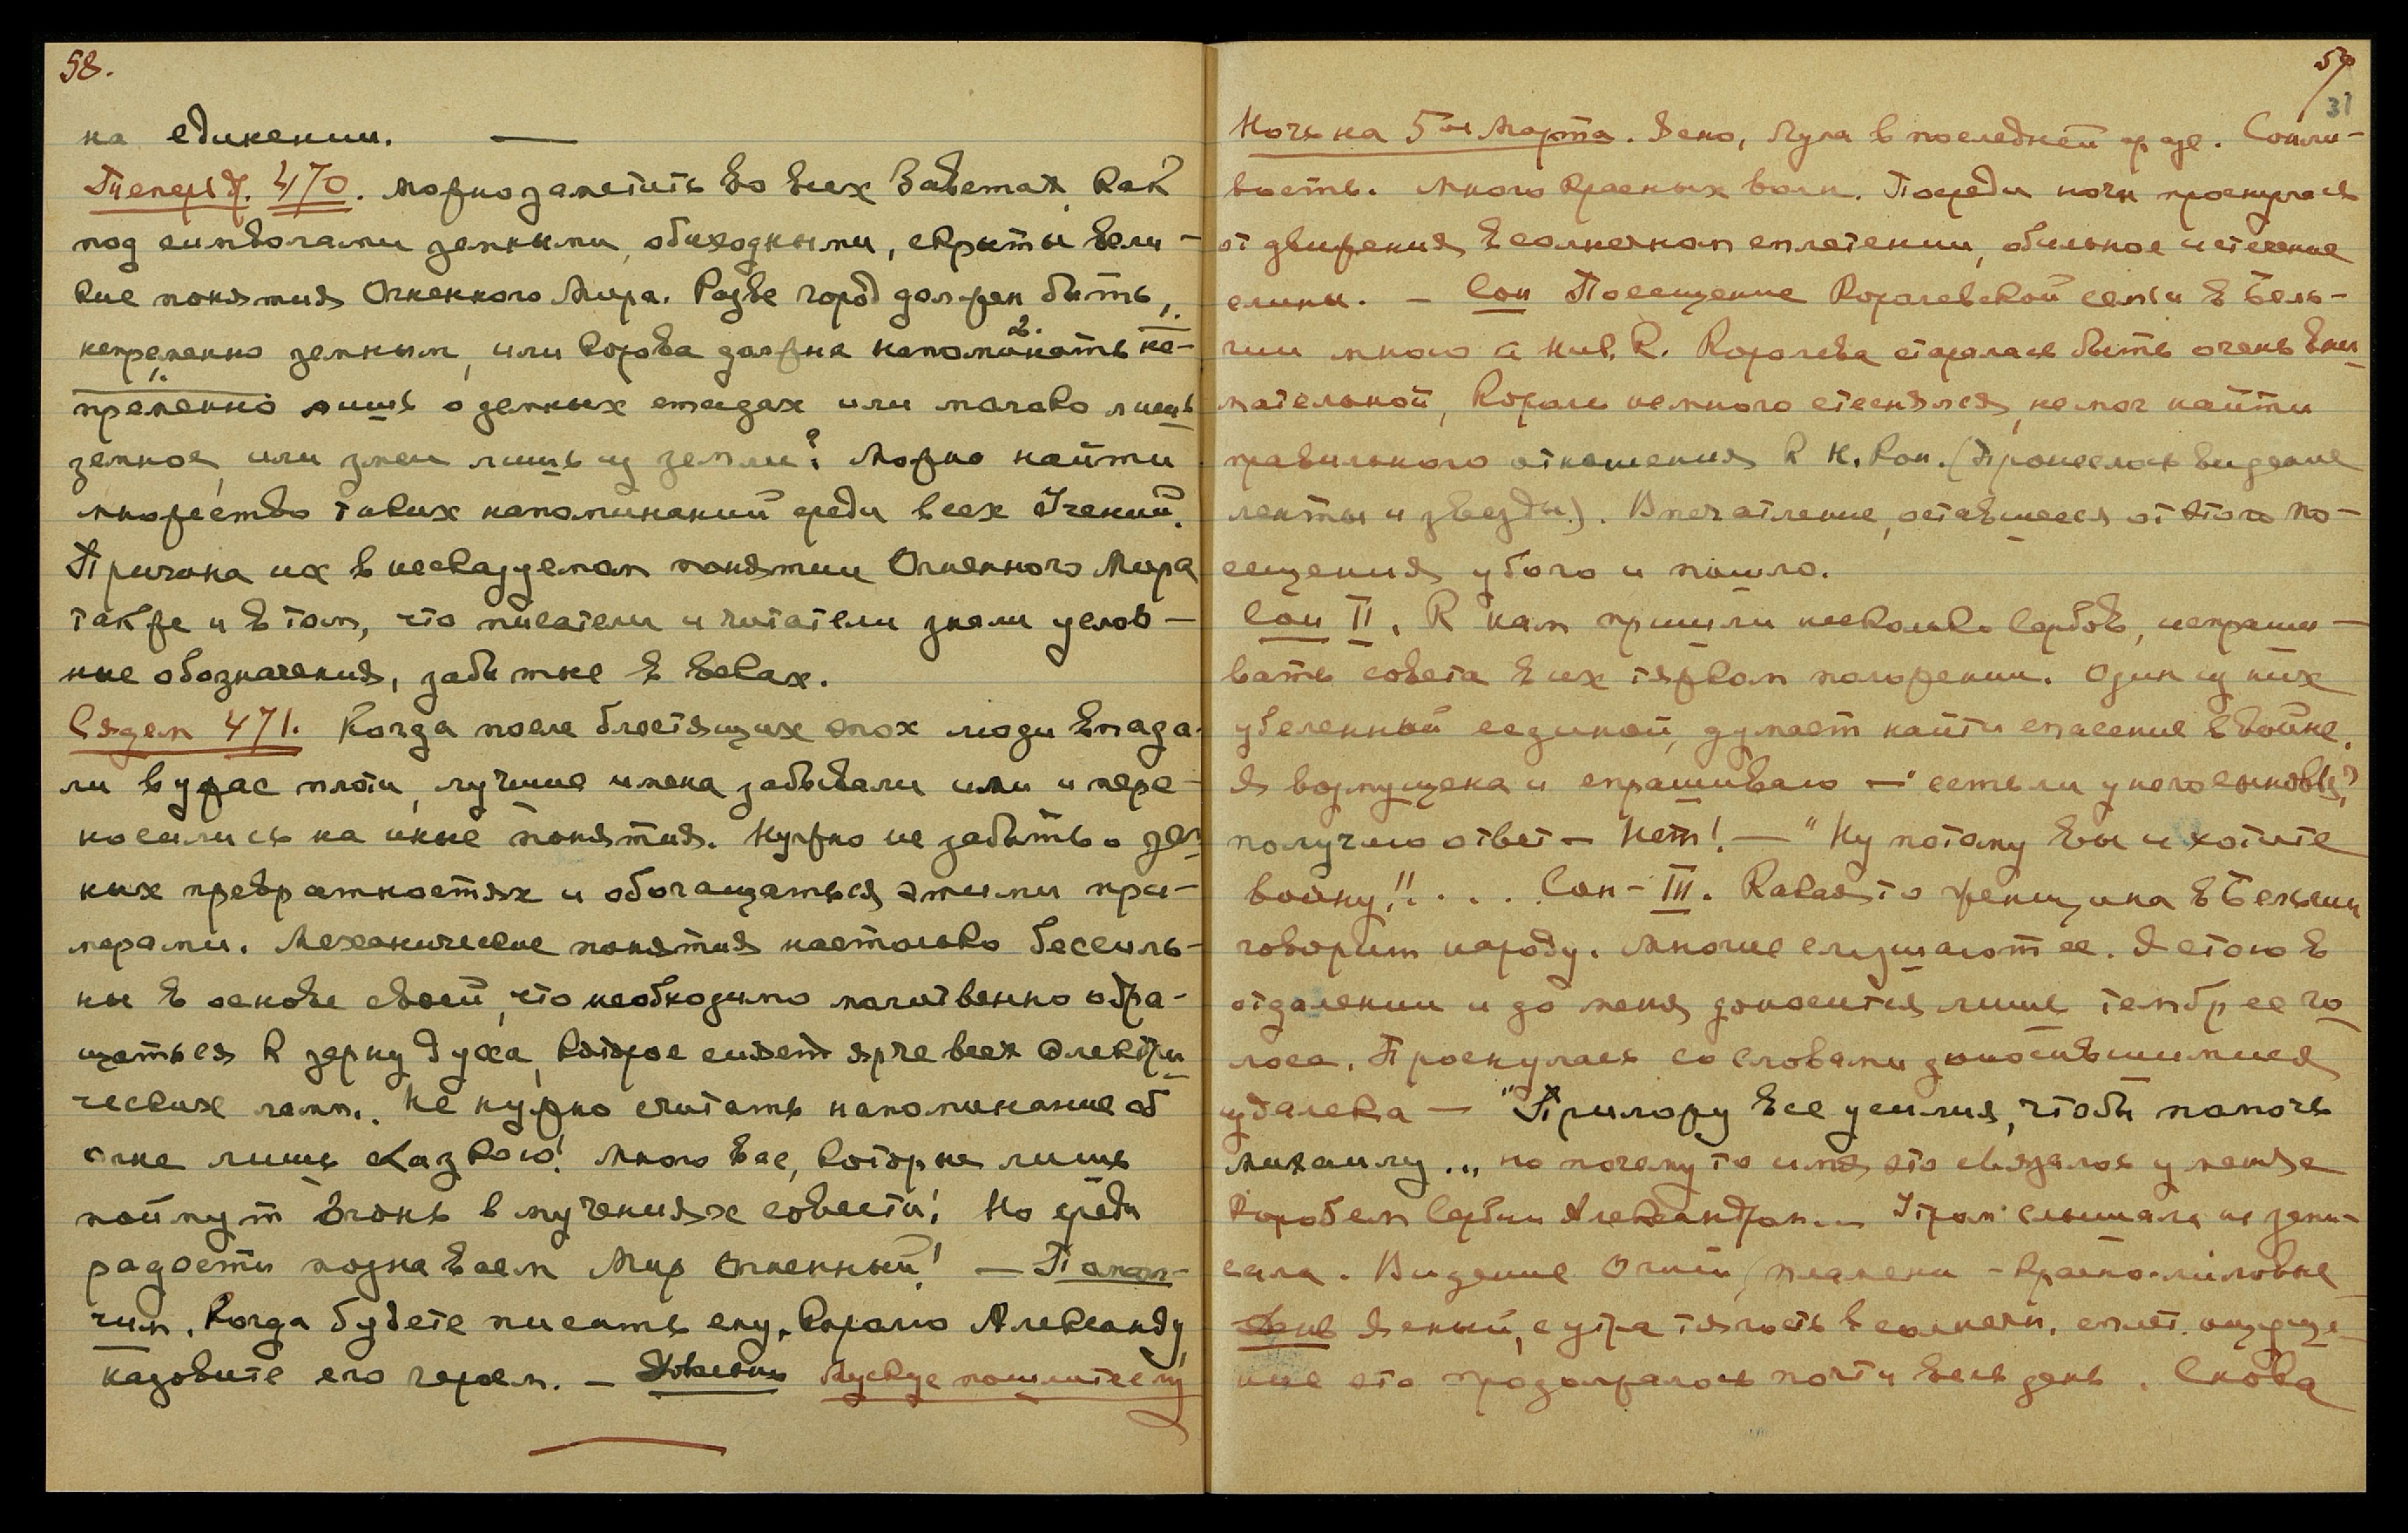 58.
на единении. —
Теперь 470. Можно заметить во всех Заветах, как
под символами земными, обиходными, скрыты вели-
кие понятия Огненного Мира. Разве город должен быть
непременно земным, или корова должна напоминать не-
пременно лишь о земных стадах или молоко лишь
земное, или змеи лишь из земли? Можно найти
множество таких напоминаний среди всех Учений.
Причина их в несказуемом понятии Огненного Мира
также и в том, что писатели и читатели знали услов-
ные обозначения, забытые в веках.
471. Когда после блестящих эпох люди впада-
ли в ужас плоти, лучшие имена забывали или и пере-
носились на иные понятия. Нужно не забыть о зем-
ных превратностях и обогащаться этими при-
мерами. Механические понятия настолько бессиль-
ны в основе своей, что необходимо молитвенно обра-
щаться к зерну духа, которое сияет ярче всех электри-
ческих ламп. Не нужно считать напоминание об
огне лишь сказкою! Много вас, которые лишь
поймут огонь в мучениях совести! Но среди
радости познаваем Мир Огненный! — Помол-
чим. Когда будете писать ему, Королю Александру,
назовите его героем. — Мускус пошлите ему
59
31
Ночь на 5ое Марта. Ясно, Луна в последней фазе. Сонли-
вость. Много красных волн. Посреди ночи проснулась
от движения в солнечном сплетении, обильное истечение
слюны. — Сон Посещение Королевской семьи в Бель-
гии мною и Ник. К. Королева старалась быть очень вни-
мательной, Король немного стеснялся, не мог найти
правильного отношения к Н. Кон. (Пронеслось видение
ленты и звезды). Впечатление, оставшееся от этого по-
сещения убого и пошло.
Сон II. К нам пришли несколько Сербов, испраши-
вать совета в их тяжком положении. Один из них
убеленный сединой, думает найти спасение в войне.
Я возмущена и спрашиваю — "есть ли у него сыновья?
получаю ответ — Нет! — "Ну потому Вы и хотите
войну!! . . . Сон — III. Какая то женщина в Бельгии
говорит народу. Многие слушают ее. Я стою в
отдалении и до меня доносится лишь тембр ее го
лоса. Проснулась со словами доносившимися
издалека — "Приложу все усилия, чтобы помочь
Михаилу... но почему то имя это связалось у меня с
Королем Сербии Александром... Утром слышала не запи-
сала. Видение Огней, пламени — красно-лиловые
День Ясный, с утра тягость в солнечн. сплет. ощуще-
ние это продолжалось почти весь день. Снова